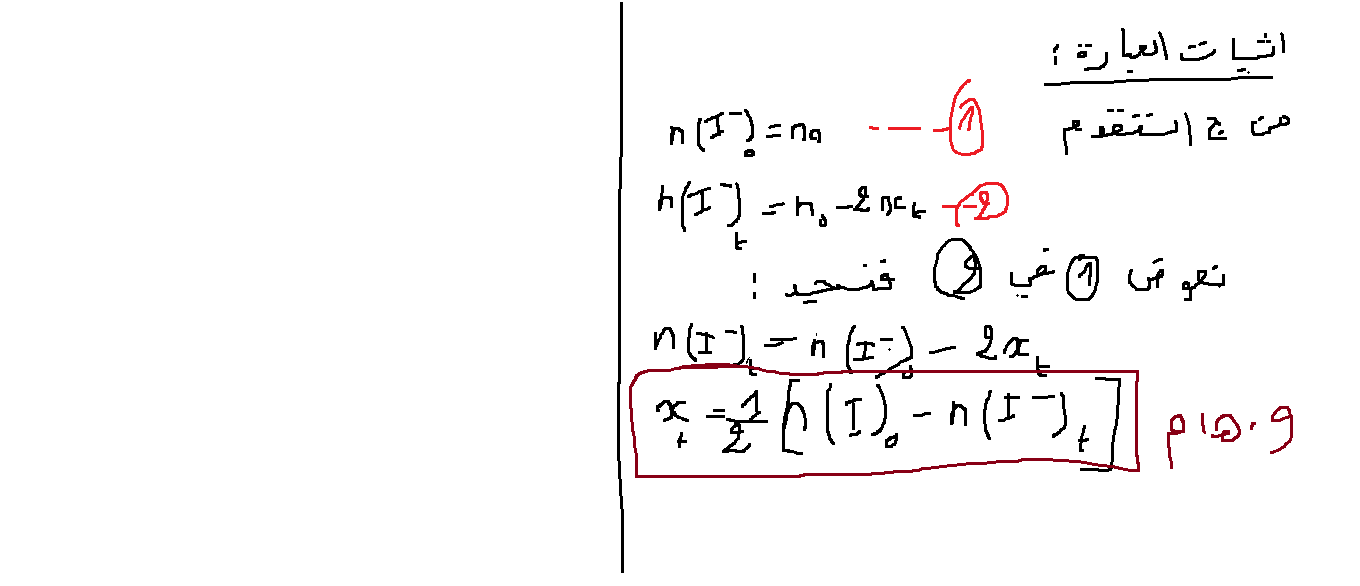 اثبات العبارة :
من ج التقدم
n(I⁻)₀ = n₀ ---- ①
n(I⁻)ₜ = n₀ - 2xₜ -- ②
نعوض ① في ② فنجد :
n(I⁻)ₜ = n(I⁻)₀ - 2xₜ
xₜ = 1/2 [n(I)₀ - n(I⁻)ₜ] و.ه.ا.م